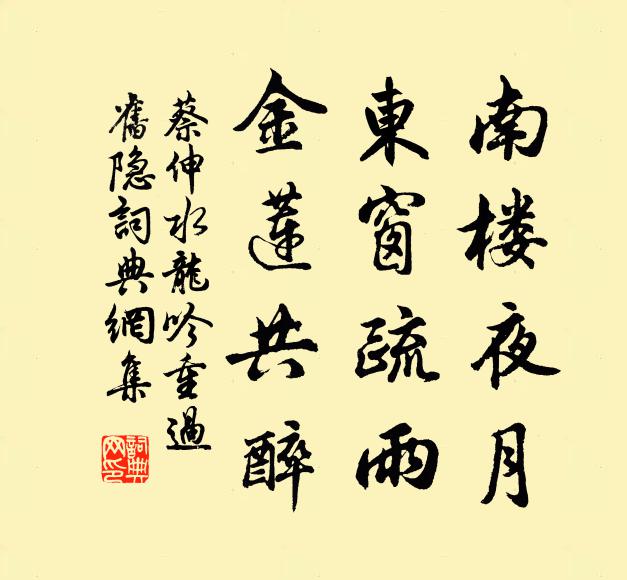 南楼夜月
東窗疏雨
金蓮共醉
蔡伸水龍吟重過
舊隐詞典網集
詞典网印